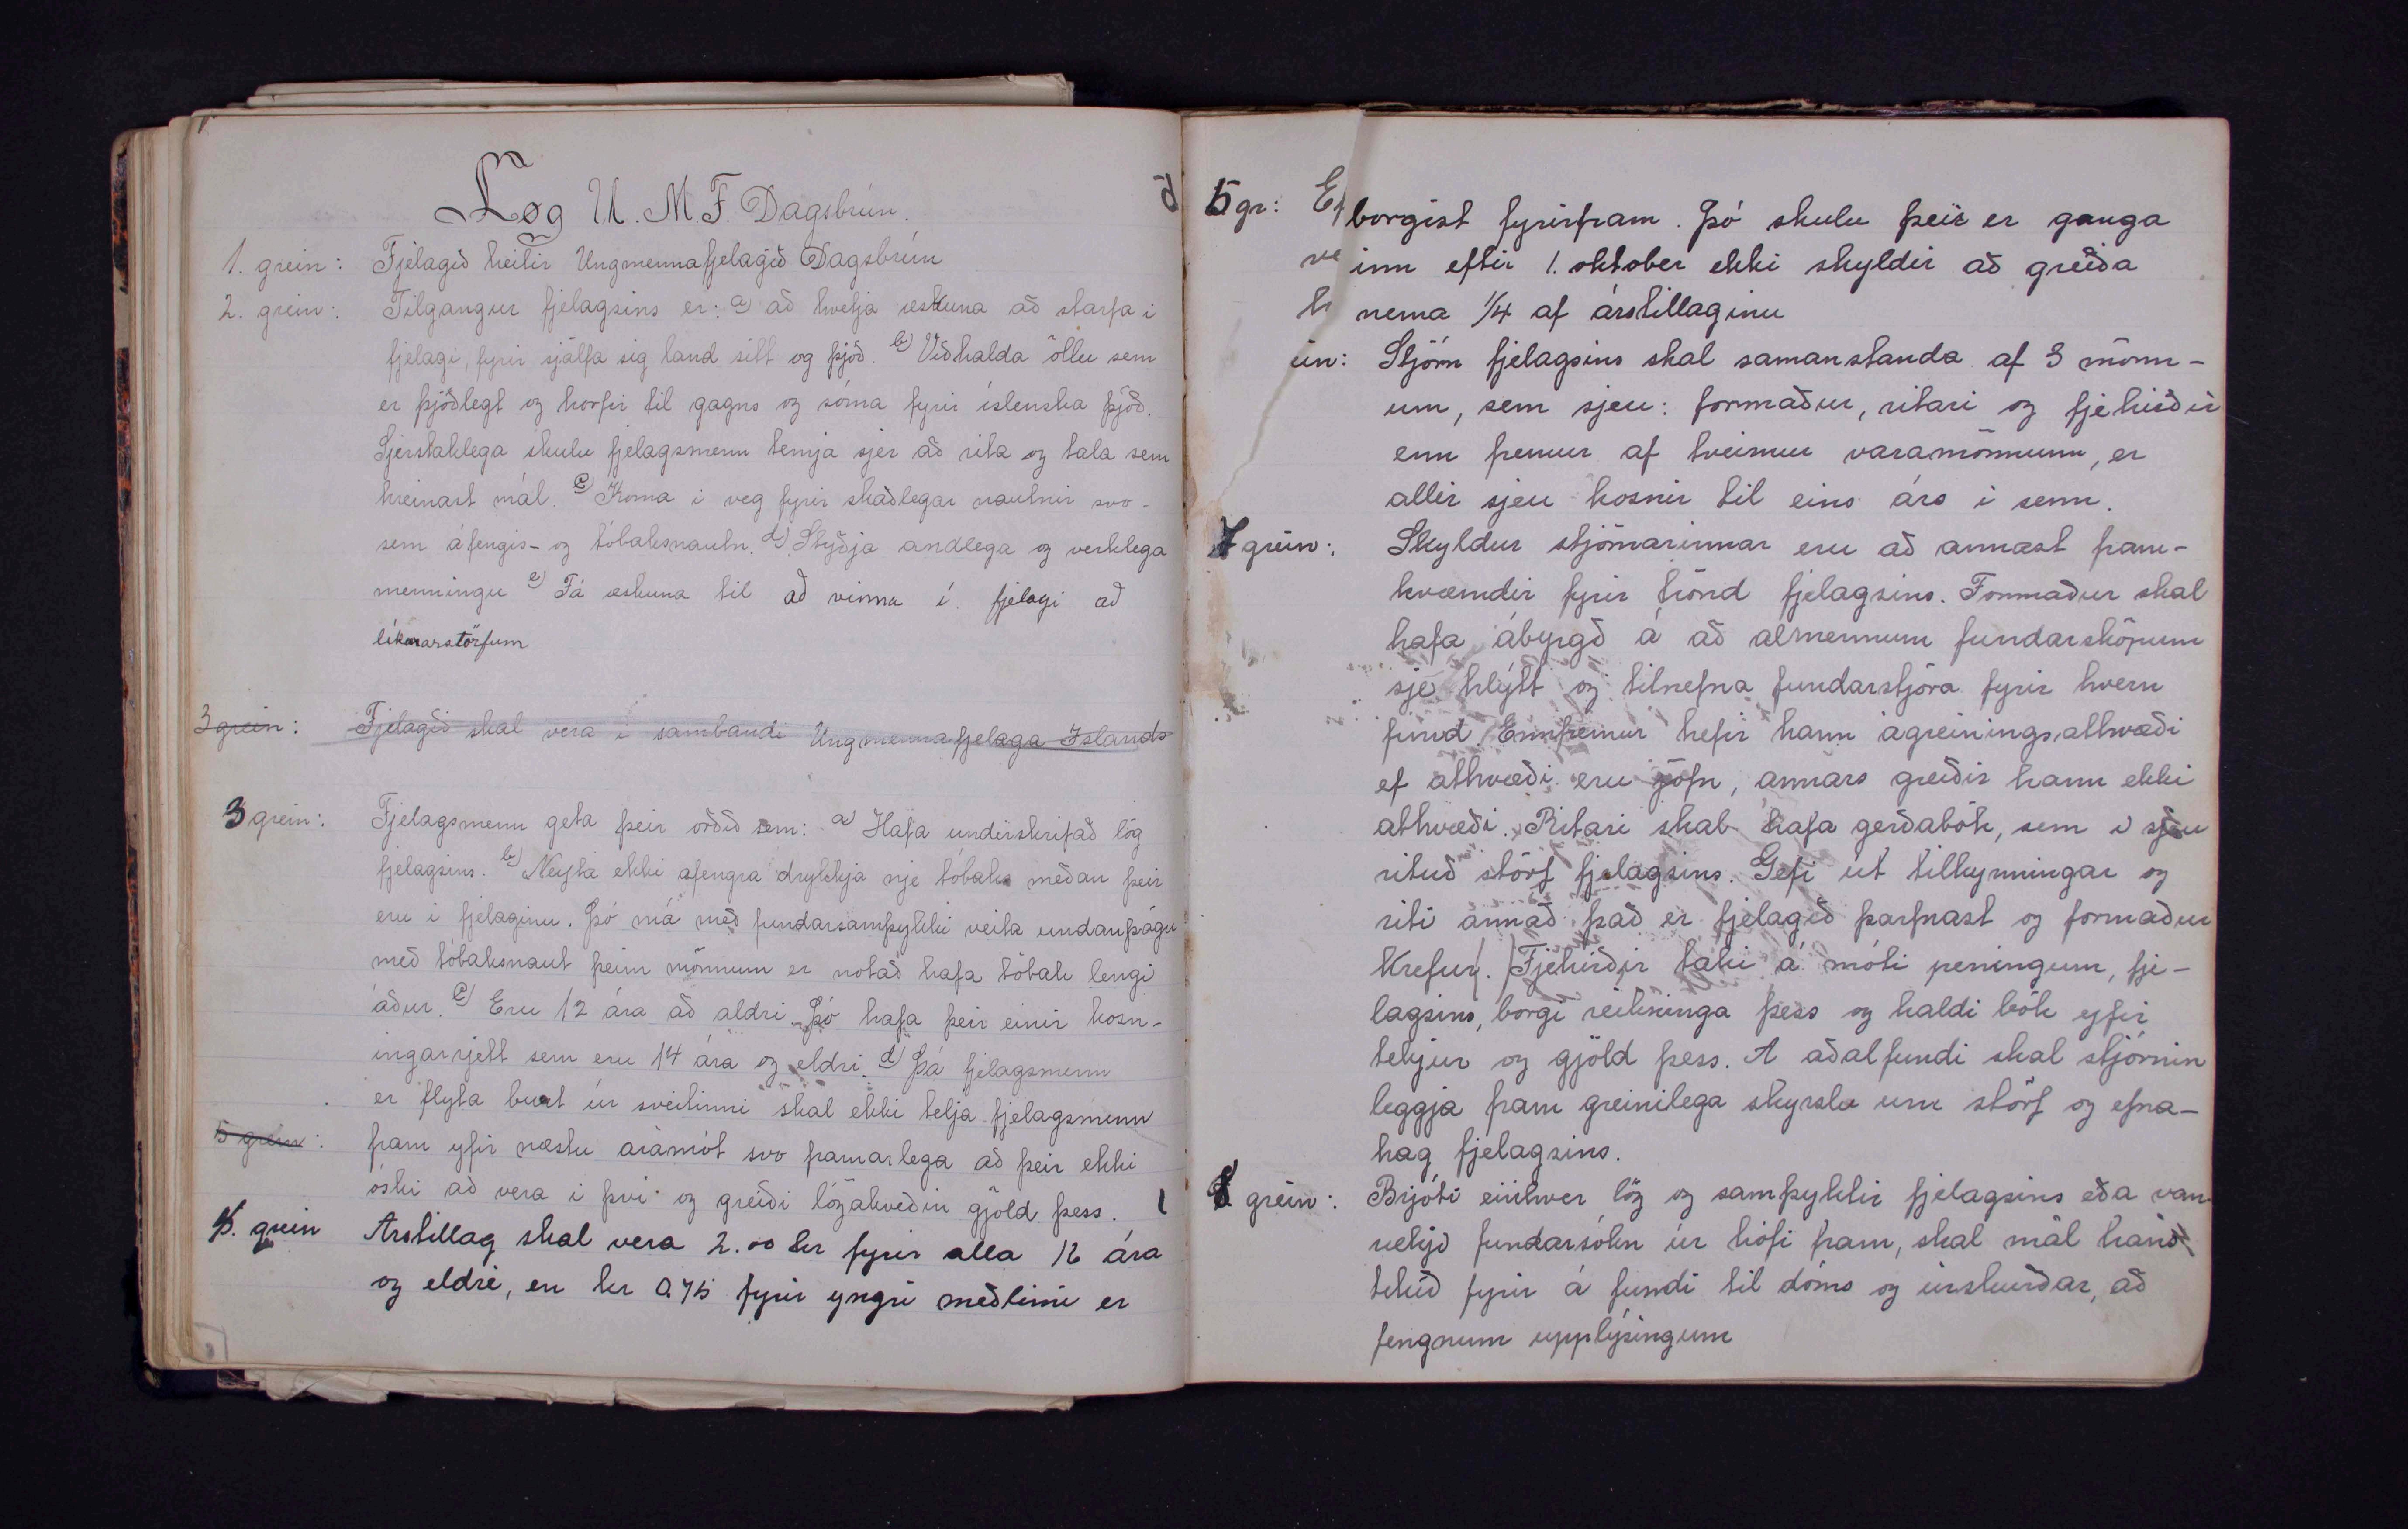 Lög U. M. F. Dagsbrún.
1. grein: Fjelagið heitir Ungmennafjelagið Dagsbrún
2. grein: Tilgangur fjelagsins er: a) að hvetja æskuna að starfa í
fjelagi, fyrir sjálfa sig land sitt og þjóð. b) Viðhalda öllu sem
er þjóðlegt og horfir til gagns og sóma fyrir íslenska þjóð.
Sjerstaklega skulu fjelagsmenn temja sjer að rita og tala sem
hreinast mál. c) Koma í veg fyrir skaðlegar nautnir svo-
sem áfengis- og tóbaksnautn. d) Styðja andlega og verklega
menningu e) Fá æskuna til að vinna í fjelagi að
líknarstörfum
3 grein: Fjelagið skal vera í sambandi Ungmennafjelaga Íslands
3 grein: Fjelagsmenn geta þeir orðið sem: a) Hafa undirskrifað lög
fjelagsins. b) Neyta ekki afengra drykkja nje tóbaks meðan þeir
eru i fjelaginu. Þó má með fundarsamþykki veita undanþágu
með tóbaksnaut þeim mönnum er notað hafa tóbak lengi
áður. c) Eru 12 ára að aldri Þó hafa þeir einir kosn-
ingarrjett sem eru 14 ára og eldri. d) Þá fjelagsmenn
er flyta burt úr sveitinni skal ekki telja fjelagsmenn
5 grein: fram yfir næstu áramót svo framarlega að þeir ekki
óski að vera i þvi og greiði lögákveðin gjöld þess.
4. grein Arstillag skal vera 2.00 kr fyrir alla 16 ára
og eldri, en kr 0.75 fyrir yngri meðlimi er
5 gr: borgist fyrirfram. Þó skulu þeir er ganga
ve inn eftir 1. oktober ekki skyldir að greiða
h nema 1/4 af árstillaginu
in: Stjórn fjelagsins skal samanstanda af 3 mönn-
um, sem sjeu: formaður, ritari og fjehirðir
enn fremur af tveimur varamönnum, er
allir sjeu kosnir til eins árs í senn.
7 grein: Skyldur stjórnarinnar eru að annast fram-
kvæmdir fyrir hönd fjelagsins. Formaður skal
hafa ábyrgð á að almennum fundarsköpum
sje hlýtt og tilnefna fundarstjóra fyrir hvern
fund Ennfremur hefir hann ágreiningsatkvæði
ef atkvæði eru jöfn, annars greiðir hann ekki
atkvæði. Ritari skal hafa gerðabók, sem í sjeu
rituð störf fjelagsins. Gefi út tilkynningar og
riti annað það er fjelagið þarfnast og formaður
krefur. Fjehirðir taki á móti peningum, fje-
lagsins, borgi reikninga þess og haldi bók yfir
tekjur og gjöld þess. A aðalfundi skal stjórnin
leggja fram greinilega skyrslu um störf og efna-
hag fjelagsins.
8 grein: Brjóti einhver lög og samþyktir fjelagsins eða van-
ræki fundarsókn úr hófi fram, skal mál hans
tekið fyrir á fundi til dóms og úrskurðar, að
fengnum upplýsingum